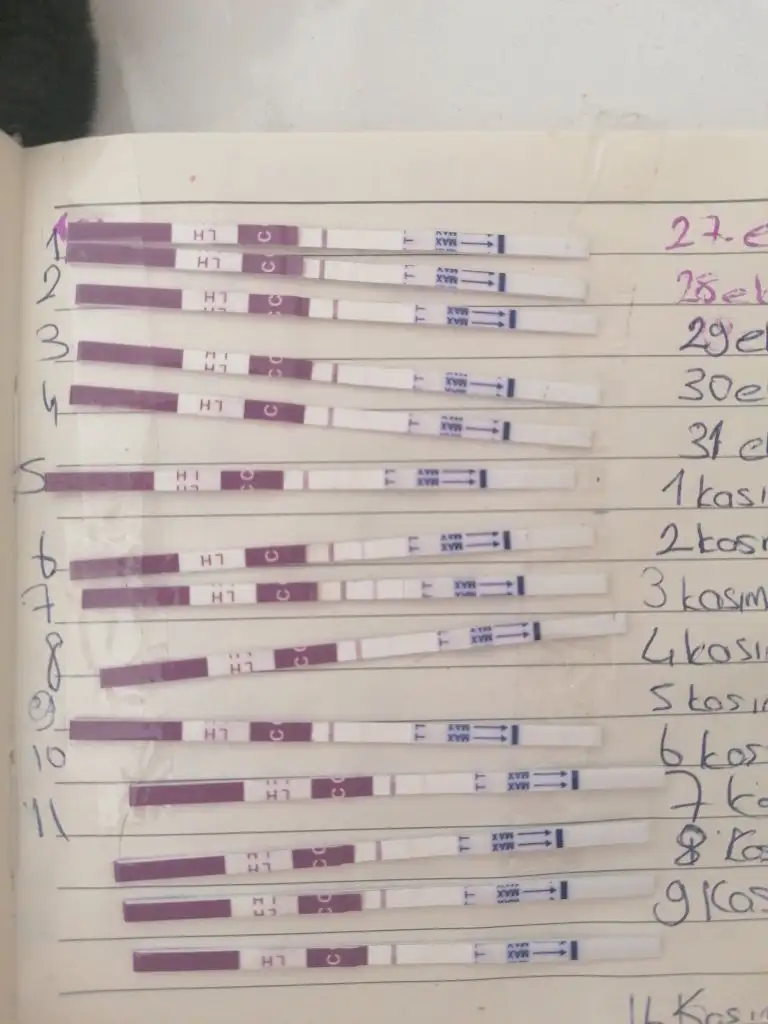 1 LH C T MAX 27.e
LH C T MAX
2 LH C T MAX 28 ek
3 LH C T MAX 29 el
4 LH C T MAX 30 e
31 e
5 LH C T MAX 1 kası
6 LH C T MAX 2 kası
7 LH C T MAX 3 kasım
8 LH C T MAX 4 kası
9 5 kası
LH C T MAX
10 6 kas
11 LH C T MAX 7 ka
LH C T MAX 8 kas
LH C T MAX 9 Kas
LH C T MAX